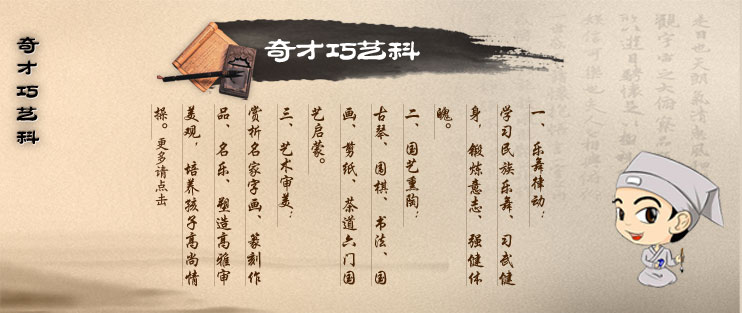 奇才巧艺科
奇才巧艺科
一、乐舞律动：
学习民族乐舞、习武健
身，锻炼意志、强健体
魄。
二、国艺熏陶：
古琴、围棋、书法、国
画、剪纸、茶道六门国
艺启蒙。
三、艺术审美：
赏析名家字画、篆刻作
品、名乐、塑造高雅审
美观，培养孩子高尚情
操。更多请点击